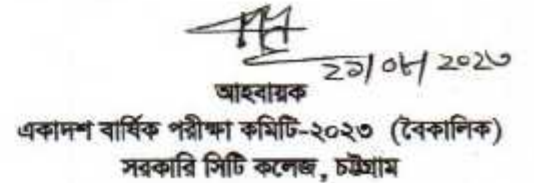 ২১/০৮/২০২৩
আহবায়ক
একাদশ বার্ষিক পরীক্ষা কমিটি-২০২৩ (বৈকালিক)
সরকারি সিটি কলেজ, চট্টগ্রাম